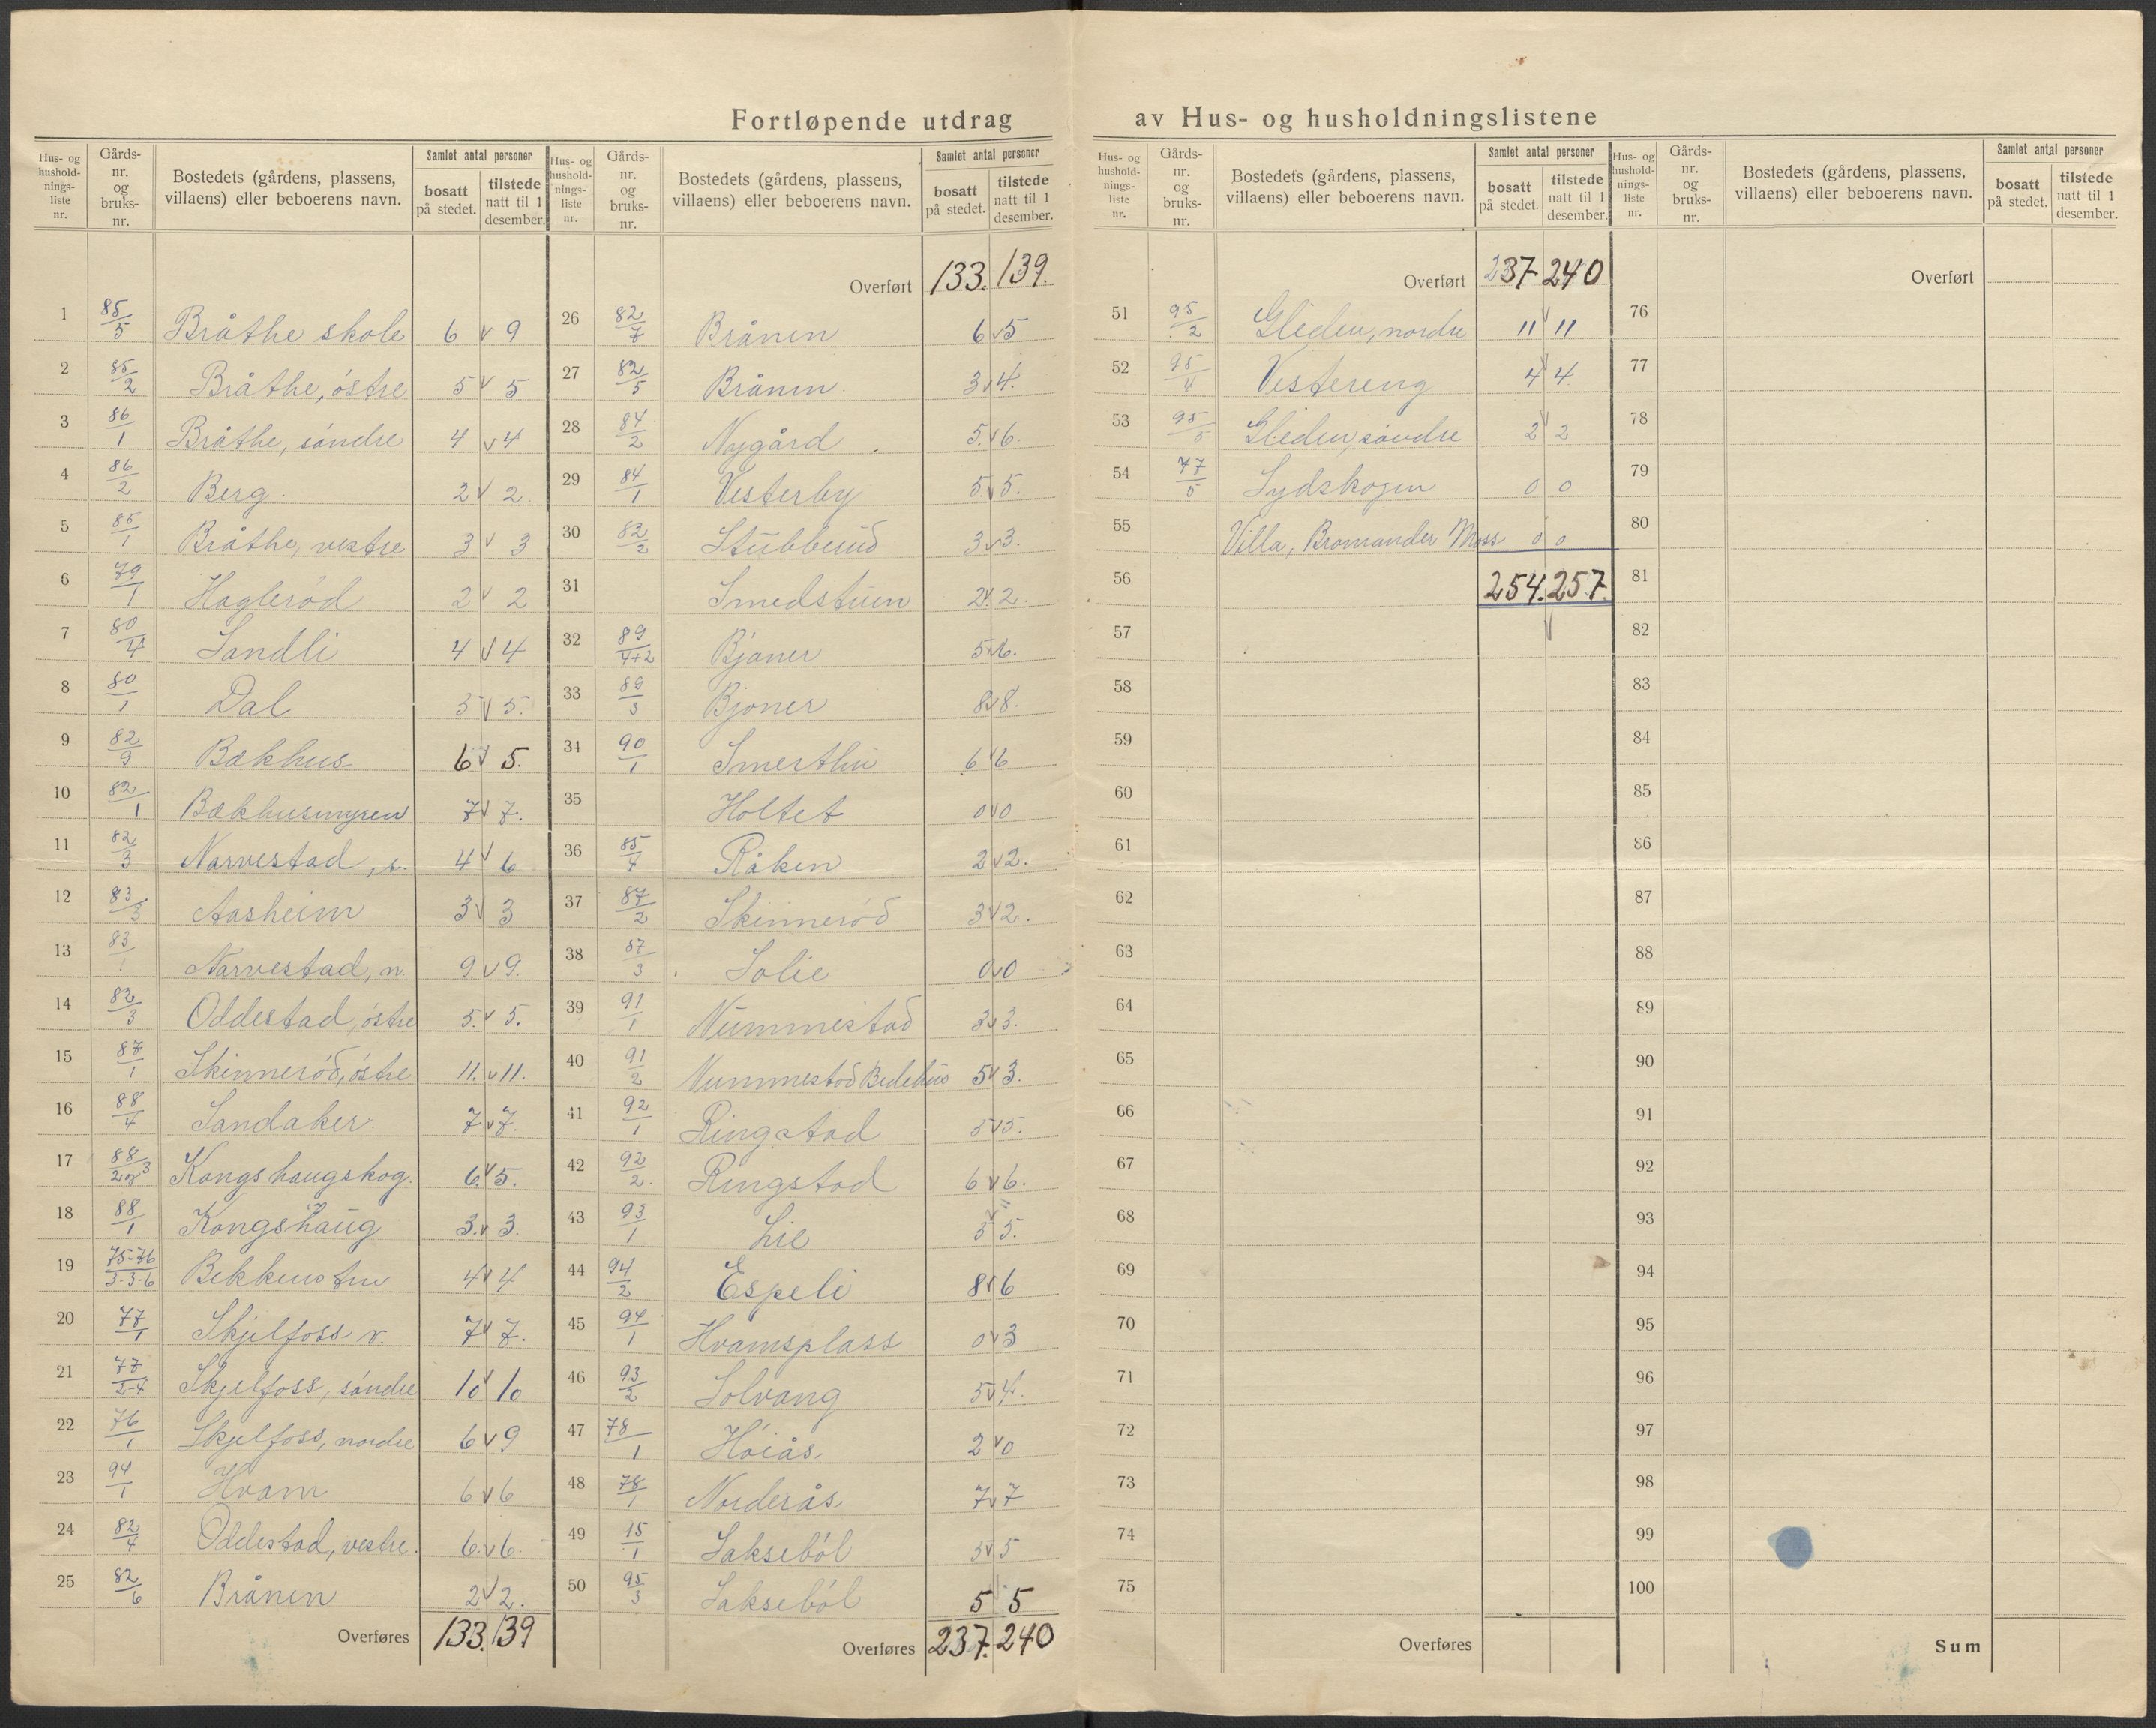 Fortløpende utdrag av Hus- og husholdningslistene
Hus- og hushold-nings-liste nr. Gårds-nr. og bruks-nr. Bostedets (gårdens, plassens, villaens) eller beboerens navn. Samlet antal personer bosatt på stedet. tilstede natt til 1 desember.
1 85/5 Bråthe skole 6 v 9
2 85/2 Bråthe, östre 5 v 5
3 86/1 Bråthe, söndre 4 v 4
4 86/2 Berg. 2 v 2.
5 85/1 Bråthe, vestre 3 v 3
6 79/1 Haglerød 2 v 2
7 80/4 Sandli 4 v 4
8 80/1 Dal 5 v 5.
9 82/9 Bækhus 6 v 5.
10 82/1 Bækhusmyren 7 v 7.
11 82/3 Narvestad, s. 4 v 6
12 83/3 Aasheim 3 v 3
13 83/1 Narvestad, n. 9. v 9.
14 82/3 Oddestad, östre 5. v 5.
15 87/1 Skinneröd, östre 11. v 11.
16 88/4 Sandaker 7 v 7.
17 88/2og3 Kongshaugskog. 6. v 5.
18 88/1 Kongshaug 3. v 3.
19 75-76/3-3-6 Bekkensten 4 v 4
20 77/1 Skjelfoss v. 7 v 7.
21 77/2-4 Skjelfoss, söndre 10 v 10
22 76/1 Skjelfoss, nordre 6 v 9
23 94/1 Hvam 6 v 6
24 82/4 Oddestad, vestre. 6. v 6.
25 82/6 Brånen 2 v 2.
Overføres 133. 139
Hus- og hushold-nings-liste nr. Gårds-nr. og bruks-nr. Bostedets (gårdens, plassens, villaens) eller beboerens navn. Samlet antal personer bosatt på stedet. tilstede natt til 1 desember.
Overført 133. 139.
26 82/7 Brånen 6 v 5
27 82/5 Brånen. 3 v 4.
28 84/2 Nygård. 5. v 6.
29 84/1 Vesterby 5. v 5.
30 82/2 Stubberud 3 v 3.
31 Smedstuen 2 v 2.
32 89/4+2 Bjöner 5 v 6.
33 89/3 Bjoner 8 v 8.
34 90/1 Smerthu 6 v 6
35 Holtet 0 v 0
36 85/4 Råken 2 v 2.
37 87/2 Skinneröd 3 v 2.
38 87/3 Solie 0 v 0
39 91/1 Nummestad 3 v 3.
40 91/2 Nummestad Bedehus 5 v 3.
41 92/1 Ringstad 5 v 5.
42 92/2. Ringstad 6 v 6.
43 93/1 Lie 5 v 5.
44 94/2 Espeli 8 v 6
45 94/1 Hvamsplass 0 v 3
46 93/2 Solvang 5 v 4.
47 78/1 Höiås 2 v 0
48 78/1 Norderås 7 v 7
49 15/1 Sakseböl 5 v 5
50 95/3 Sakseböl 5 5
Overføres 237. 240
Hus- og hushold-nings-liste nr. Gårds-nr. og bruks-nr. Bostedets (gårdens, plassens, villaens) eller beboerens navn. Samlet antal personer bosatt på stedet. tilstede natt til 1 desember.
Overført 237 240
51 95/2 Gleden, nordre 11 v 11
52 95/4 Vestereng 4 v 4
53 95/5 Gleden, söndre 2 v 2
54 77/5 Sydskogen 0 0
55 Villa, Bromander Moss 0 0
56 254. 257.
57
58
59
60
61
62
63
64
65
66
67
68
69
70
71
72
73
74
75
Overføres
Hus- og hushold-nings-liste nr. Gårds-nr. og bruks-nr. Bostedets (gårdens, plassens, villaens) eller beboerens navn. Samlet antal personer bosatt på stedet. tilstede natt til 1 desember.
Overført
76
77
78
79
80
81
82
83
84
85
86
87
88
89
90
91
92
93
94
95
96
97
98
99
100
Sum